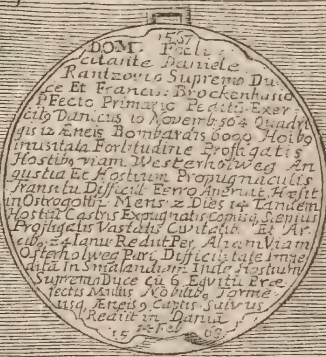 1567
DOM. Feli
citante Daniele
Rantzovio Supremo Du
ce Et Francisc: Brockenhusio
PFecto Primario Peditũ Exer
citq Danicus 10 Novemb 564 Quadri
gis 12 Æneis Bombardis 6090 Hoibo
inusitata Fortitudine Profligatis
Hostibq viam Westerholweg An
gustia Et Hostium Propugnaculis
Transitu Difficil Ferro Aperuit Hæsit
in Ostrogothi Mens 2 Dies 14 Tandem
Hostiũ Castris Expugnatis Comitib
Profligatis Vastatis Civitatib Et Ar
cibq 24 Ianu: Redut Per Aliam Viam
Osterholweg Pari Difficultate Impe
ditã In Smalandiam Inde Hostium
Supremo Duce cũ 6 Equitũ Præ
fectis Multis Nobilibq Torme
tisq Æneis 9 Captis Salvus
Rediit in Daniã
14 Feb
15 68